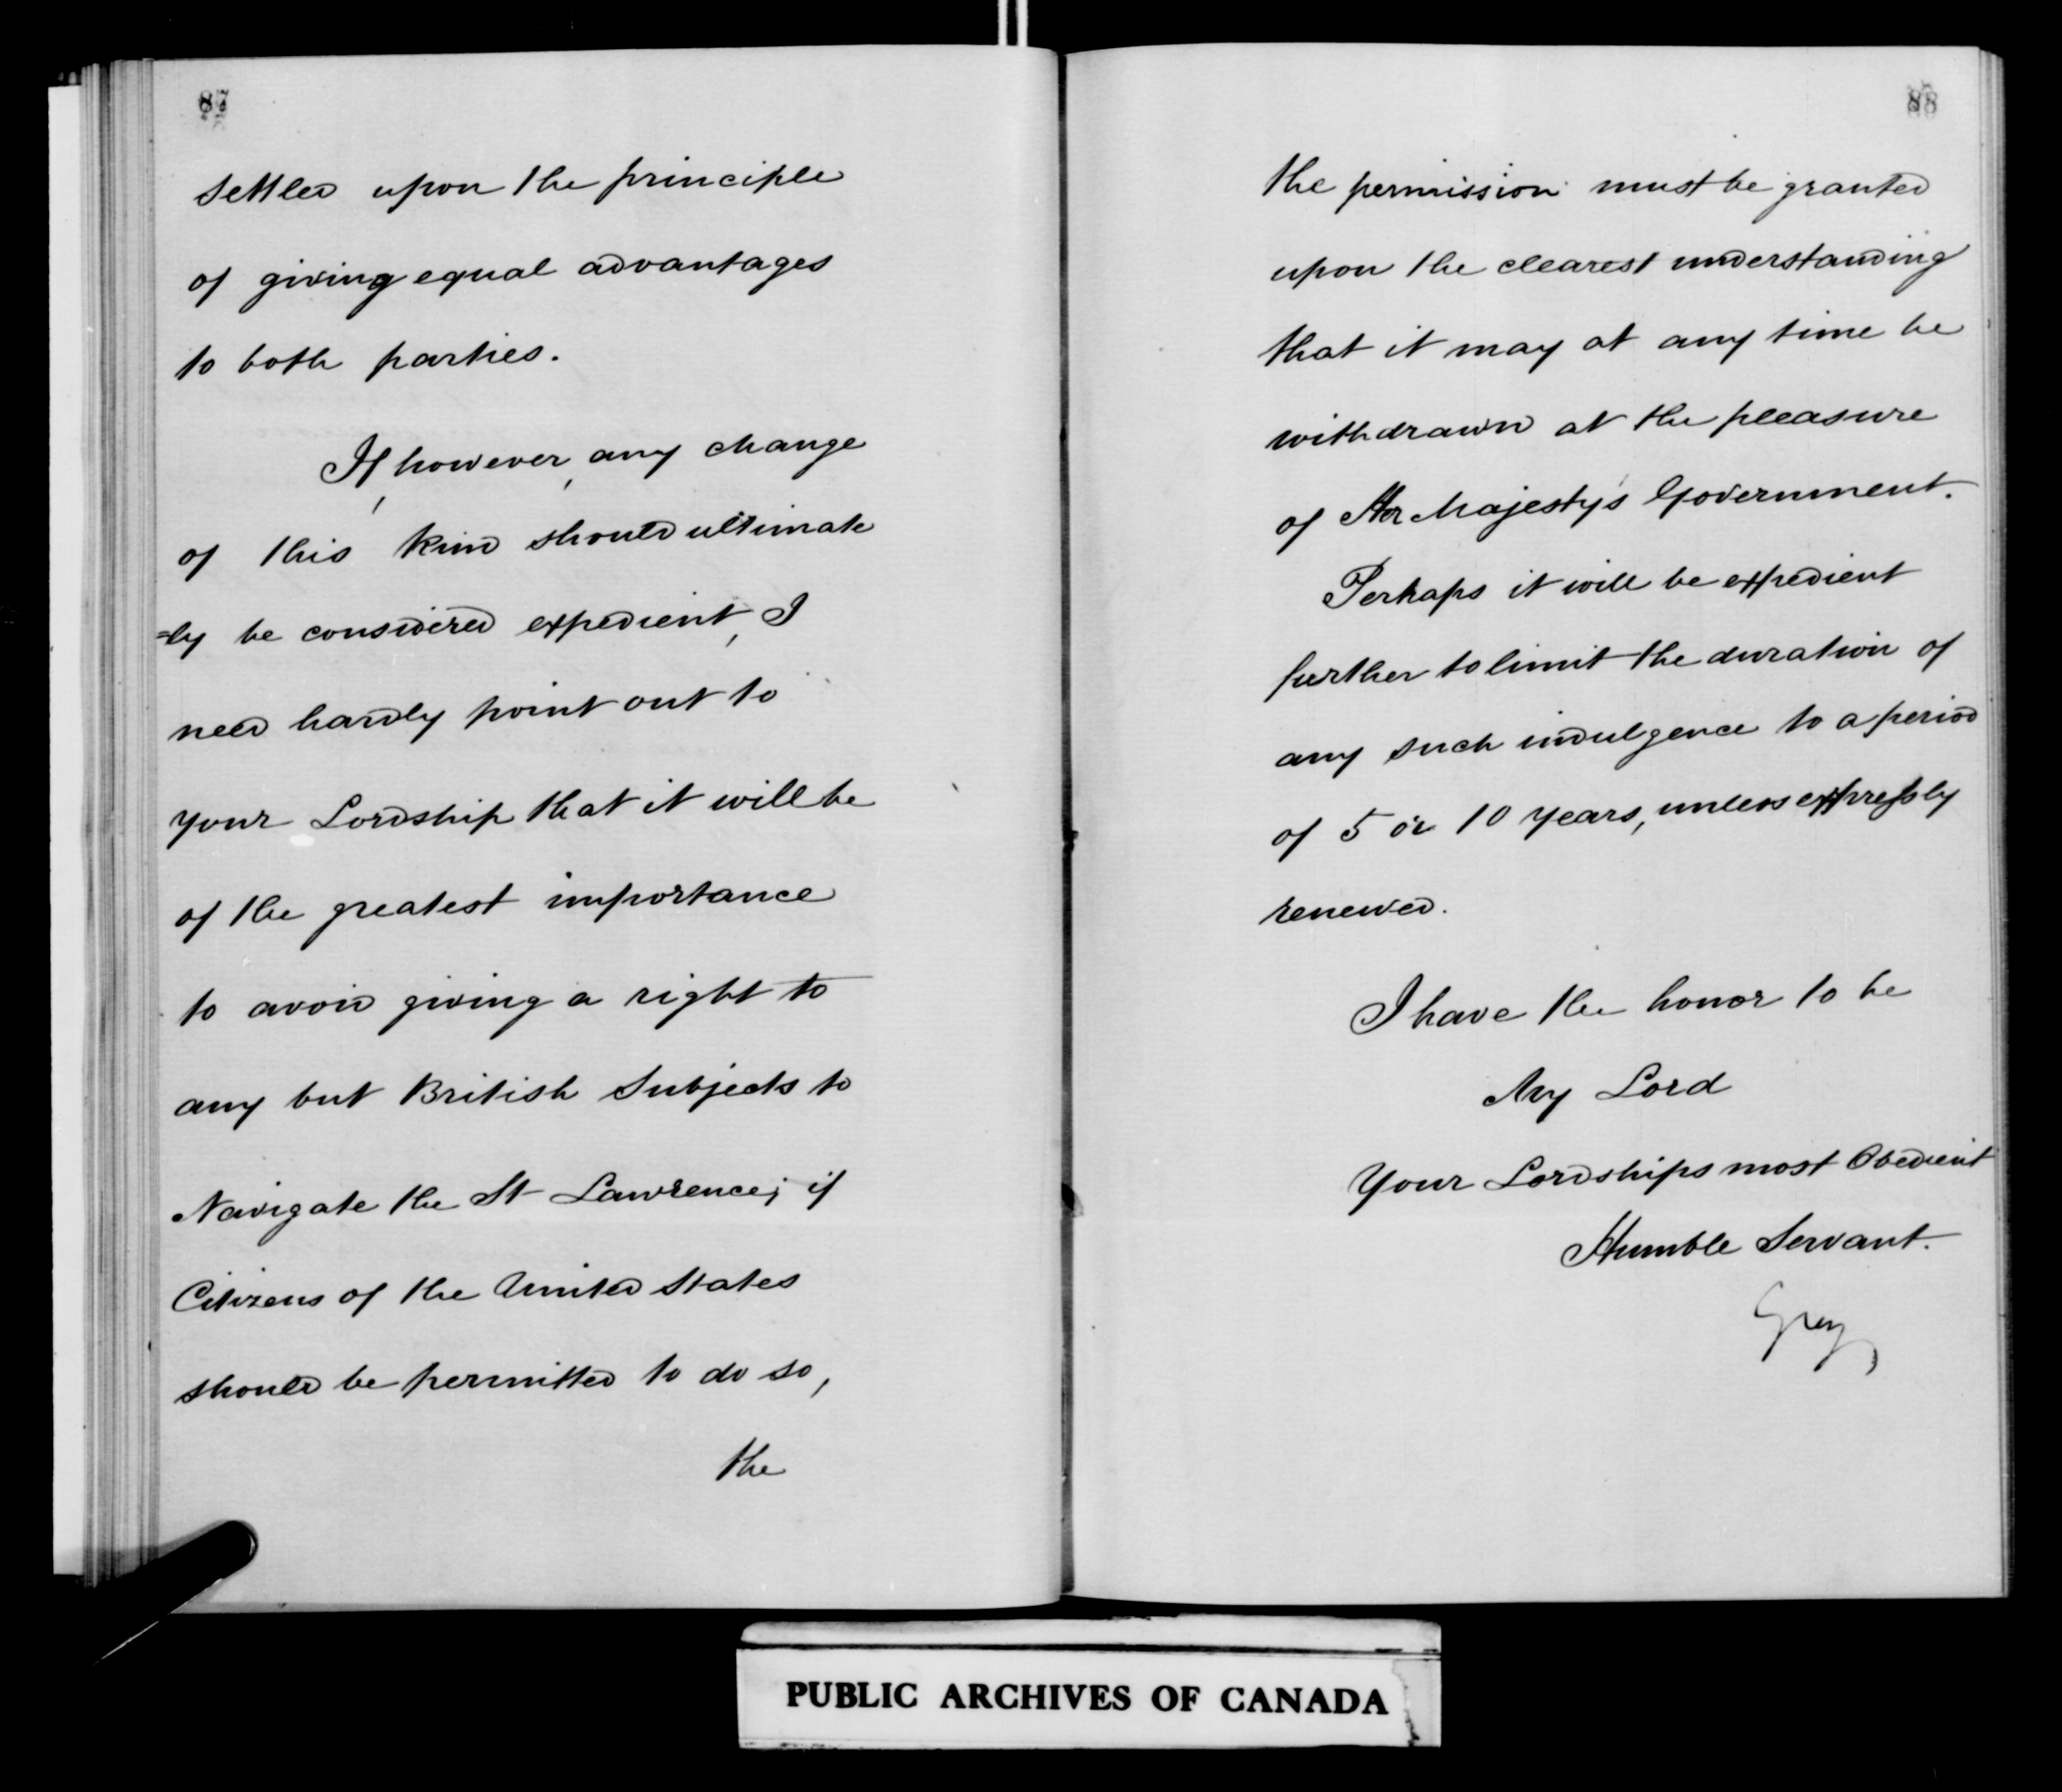 87
settled upon the principle
of giving equal advantages
to both parties.
If, however, any change
of this kind should ultimate
=ly be considered expedient, I
need hardly point out to
your Lordship that it will be
of the greatest importance
to avoid giving a right to
any but British Subjects to
Navigate the St Lawrence; if
Citizens of the United States
should be permitted to do so,
the
88
the permission must be granted
upon the clearest understanding
that it may at any time be
withdrawn at the pleasure
of Her Majesty's Government.
Perhaps it will be expedient
further to limit the duration of
any such indulgence to a period
of 5 or 10 years, unless expressly
renewed.
I have the honor to be
My Lord
Your Lordships most Obedient
Humble Servant.
Grey
PUBLIC ARCHIVES OF CANADA